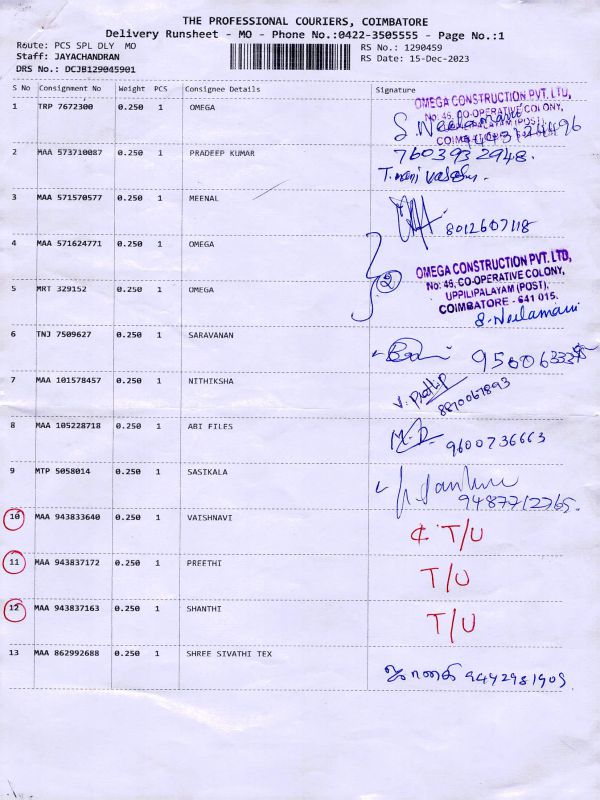 THE PROFESSIONAL COURIERS, COIMBATORE
Delivery Runsheet - MO - Phone No.:0422-3505555 - Page No.:1
Route: PCS SPL DLY MO RS No.: 1290459
Staff: JAYACHANDRAN RS Date: 15-Dec-2023
DRS No.: DCJB129045901
S No Consignment No Weight PCS Consignee Details Signature
1 TRP 7672300 0.250 1 OMEGA
OMEGA CONSTRUCTION PVT. LTD,
No: 46, CO-OPERATIVE COLONY,
UPPILIPALAYAM (POST),
S. Neelamani
2 MAA 573710087 0.250 1 PRADEEP KUMAR
7603932948.
3 MAA 571570577 0.250 1 MEENAL
8012607118
4 MAA 571624771 0.250 1 OMEGA
2
OMEGA CONSTRUCTION PVT. LTD,
No: 46, CO-OPERATIVE COLONY,
UPPILIPALAYAM (POST),
COIMBATORE - 641 015.
5 MRT 329152 0.250 1 OMEGA
S. Neelamani
6 TNJ 7509627 0.250 1 SARAVANAN
7 MAA 101578457 0.250 1 NITHIKSHA
8870067893
8 MAA 105228718 0.250 1 ABI FILES
9600736663
9 MTP 5058014 0.250 1 SASIKALA
9487712765.
10 MAA 943833640 0.250 1 VAISHNAVI T/U
11 MAA 943837172 0.250 1 PREETHI T/U
12 MAA 943837163 0.250 1 SHANTHI T/U
13 MAA 862992688 0.250 1 SHREE SIVATHI TEX
9442981909